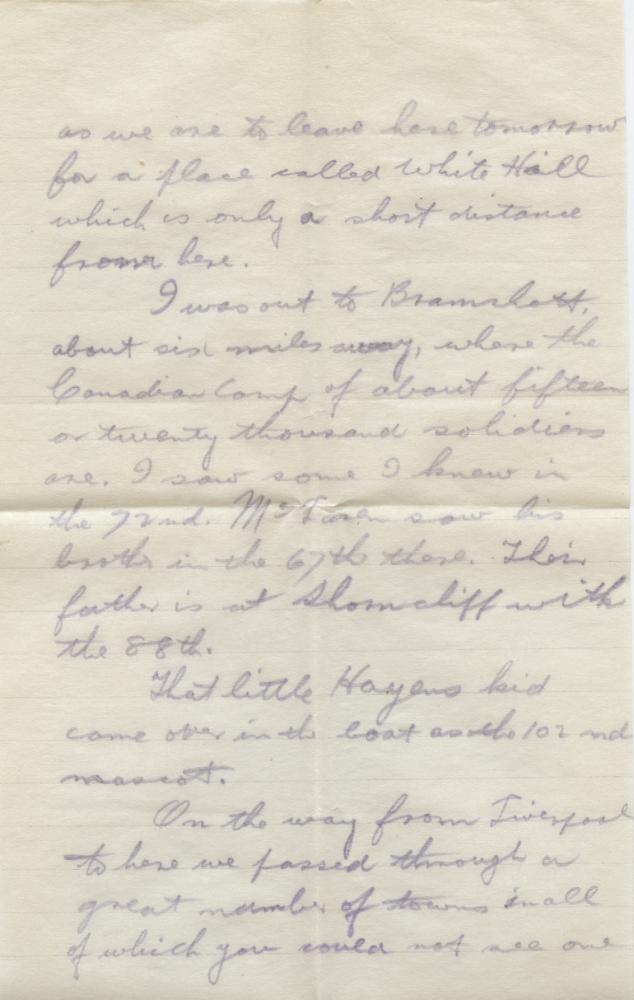 as we are to leave here tomorrow
for a place called White Hill
which is only a short distance
from here.
I was out to Bramshott,
about six miles away, where the
Canadian Camp of about fifteen
or twenty thousand solidiers
are. I saw some I knew in
the 72nd. saw his
brother in the 67th there. Their
father is at Shorncliff with
the 88th.
That little Hayens kid
came over in the boat as the 102nd
mascot.
On the way from Liverpool
to here we passed through a
great number of towns in all
of which you could not see one